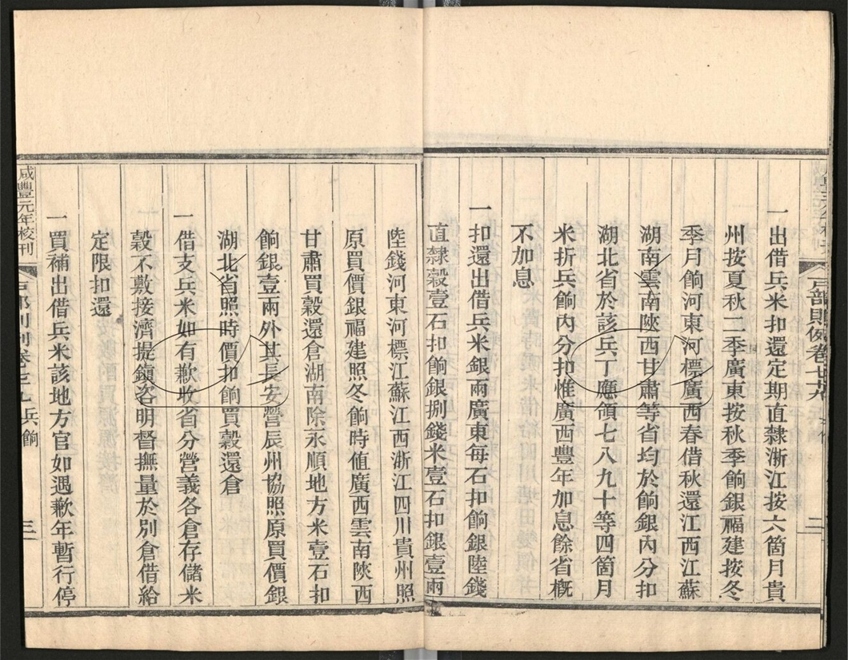 一出借兵米扣還定期直隸浙江按六箇月貴
州按夏秋二季廣東按秋季餉銀福建按冬
季月餉河東河標廣西春借秋還江西江蘇
湖南雲南陝西甘肅等省均於餉銀內分扣
湖北省於該兵丁應領七八九十等四箇月
米折兵餉內分扣惟廣西豐年加息餘省概
不加息
一扣還出借兵米銀兩廣東每石扣餉銀陸錢
直隸穀壹石扣餉銀捌錢米壹石扣銀壹兩
陸錢河東河標江蘇江西浙江四川貴州照
原買價銀福建照冬餉時值廣西雲南陝西
甘肅買穀還倉湖南除永順地方米壹石扣
餉銀壹兩外其長安營辰州協照原買價銀
湖北省照時價扣餉買穀還倉
一借支兵米如有歉收省分營義各倉存儲米
穀不敷接濟提鎮咨明督撫量於別倉借給
定限扣還
一買補出借兵米該地方官如遇歉年暫行停
咸豐元年校刊
戶部則例卷
兵餉
三